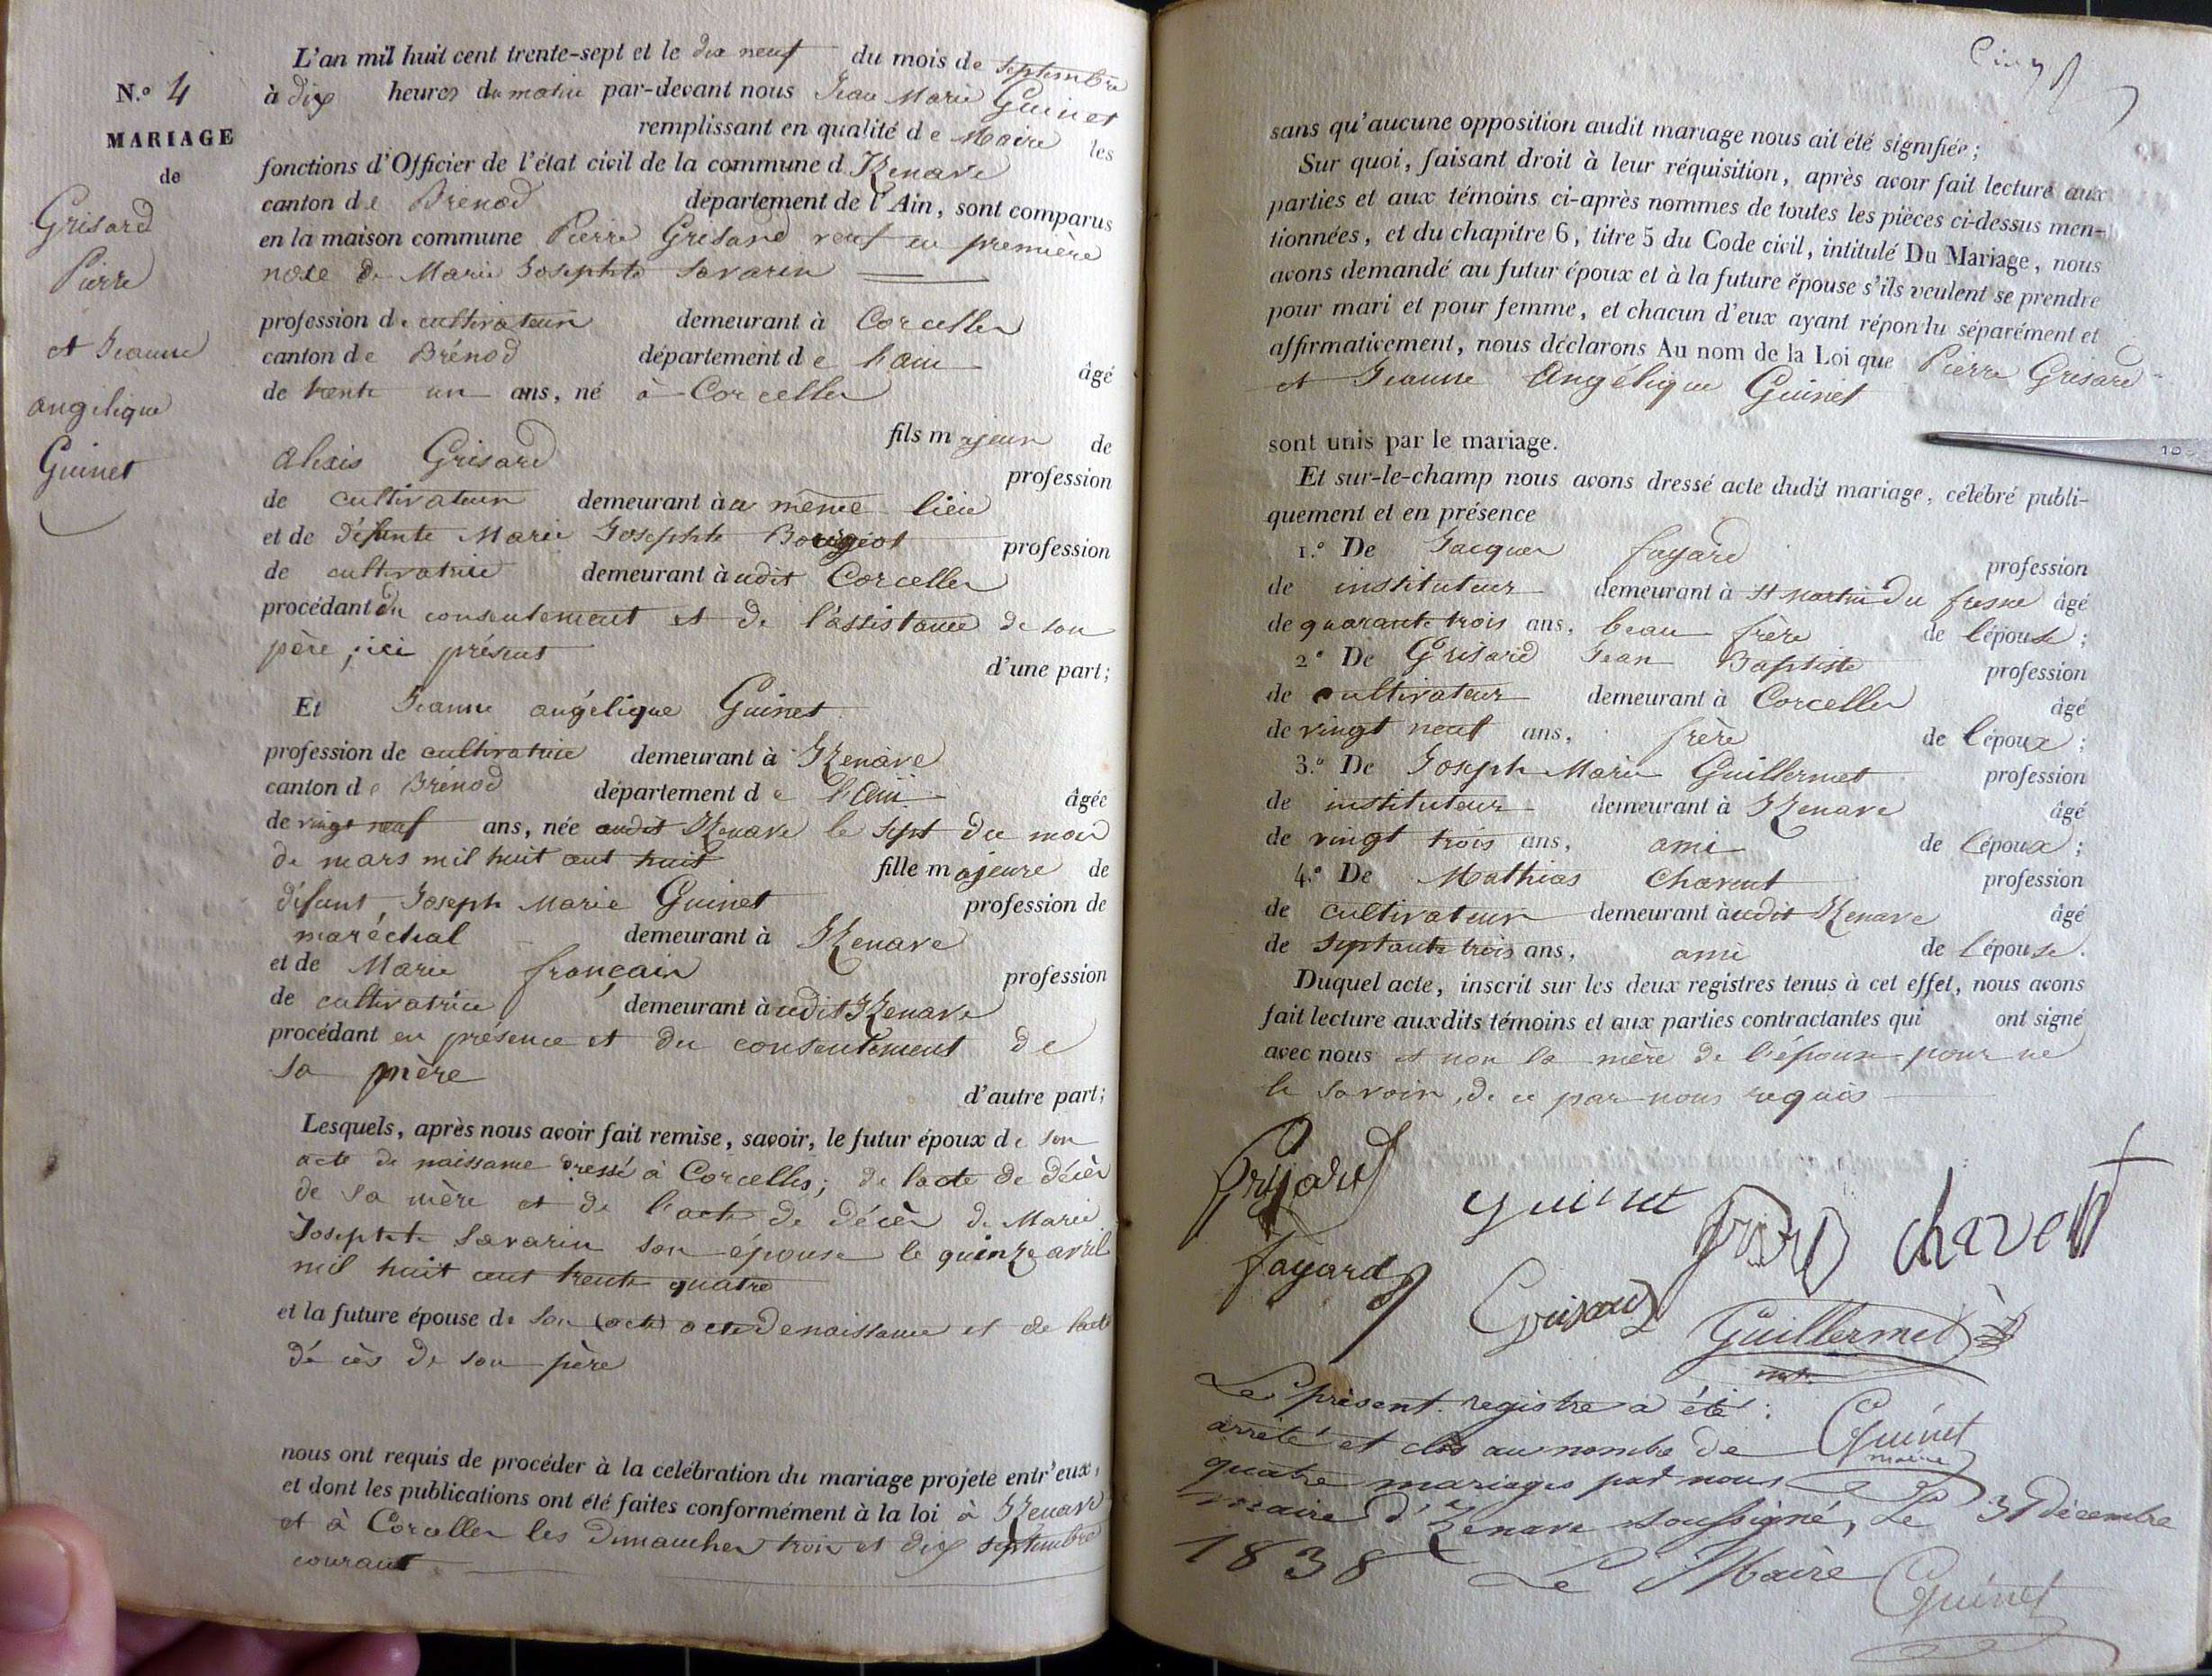 N.º 4
MARIAGE
de
Grisard
Pierre
et Jeanne
angelique
Guinet
L'an mil huit cent trente-sept et le dix neuf du mois de septembre
à dix heures du matin par-devant nous Jean Marie Guinet
remplissant en qualité de Maire les
fonctions d'Officier de l'état civil de la commune d'Izenave
canton de Brénod département de l'Ain, sont comparus
en la maison commune Pierre Grisard veuf en première
noce de Marie Josephte Savarin
profession de cultivateur demeurant à Corcelles
canton de Brénod département de l'ain âgé
de trente un ans, né à Corcelles
fils majeur de
Alexis Grisard profession
de cultivateur demeurant au même lieu
et de défunte Marie Josephte profession
de cultivatrice demeurant audit Corcelles
procédant du consentement et de l'assistance de son
père, ici présent d'une part;
Et Jeanne angélique Guinet
profession de cultivatrice demeurant à Izenave
canton de Brénod département de l'Ain âgée
de vingt neuf ans, née audit Izenave le sept du mois
de mars mil huit cent huit fille majeure de
défunt Joseph Marie Guinet profession de
maréchal demeurant à Izenave
et de Marie françain profession
de cultivatrice demeurant audit Izenave
procédant en présence et du consentement de
sa mère
d'autre part;
Lesquels, après nous avoir fait remise, savoir, le futur époux de son
acte de naissance dressé à Corcelles; de l'acte de décès
de sa mère et de l'acte de décès de Marie
Josephte Savarin son épouse le quinze avril
mil huit cent trente quatre
et la future épouse de son (acte) acte de naissance et de l'acte
décès de son père
nous ont requis de procéder à la celébration du mariage projeté entr'eux,
et dont les publications ont été faites conformément à la loi à Izenave
et à Corcelles les Dimanches trois et dix septembre
courant
sans qu'aucune opposition audit mariage nous ait été signifiée;
Sur quoi, faisant droit à leur réquisition, après avoir fait lecture aux
parties et aux témoins ci-après nommes de toutes les pièces ci-dessus men-
tionnées, et du chapitre 6, titre 5 du Code civil, intitulé Du Mariage, nous
avons demandé au futur époux et à la future épouse s'ils veulent se prendre
pour mari et pour femme, et chacun d'eux ayant répondu séparément et
affirmativement, nous déclarons Au nom de la Loi que Pierre Grisard
et Jeanne Angélique Guinet
sont unis par le mariage.
Et sur-le-champ nous avons dressé acte dudit mariage, célébré publi-
quement et en présence
1.º De Jacques fayard profession
de instituteur demeurant à St Martin du fresne âgé
de quarante trois ans, beau frère de l'épouse;
2º De Grisard Jean Baptiste profession
de cultivateur demeurant à Corcelles âgé
de vingt neuf ans, frère de l'époux;
3.º De Joseph Marie Guillermet profession
de instituteur demeurant à Izenave âgé
de vingt trois ans, ami de l'époux;
4.º De Mathias Chavent profession
de cultivateur demeurant audit Izenave âgé
de septante trois ans, ami de l'épouse.
Duquel acte, inscrit sur les deux registres tenus à cet effet, nous avons
fait lecture auxdits témoins et aux parties contractantes qui ont signé
avec nous et non la mère de l'épouse pour ne
le savoir, de ce par nous requis
Grisard guinet chavent
fayard Grisard Guillermet
Le présent registre a été
arrêté et clos au nombre de Guinet
maire
quatre mariages par nous
maire d'Izenave soussigné, Le 31 décembre
1838 Le Maire Guinet
10